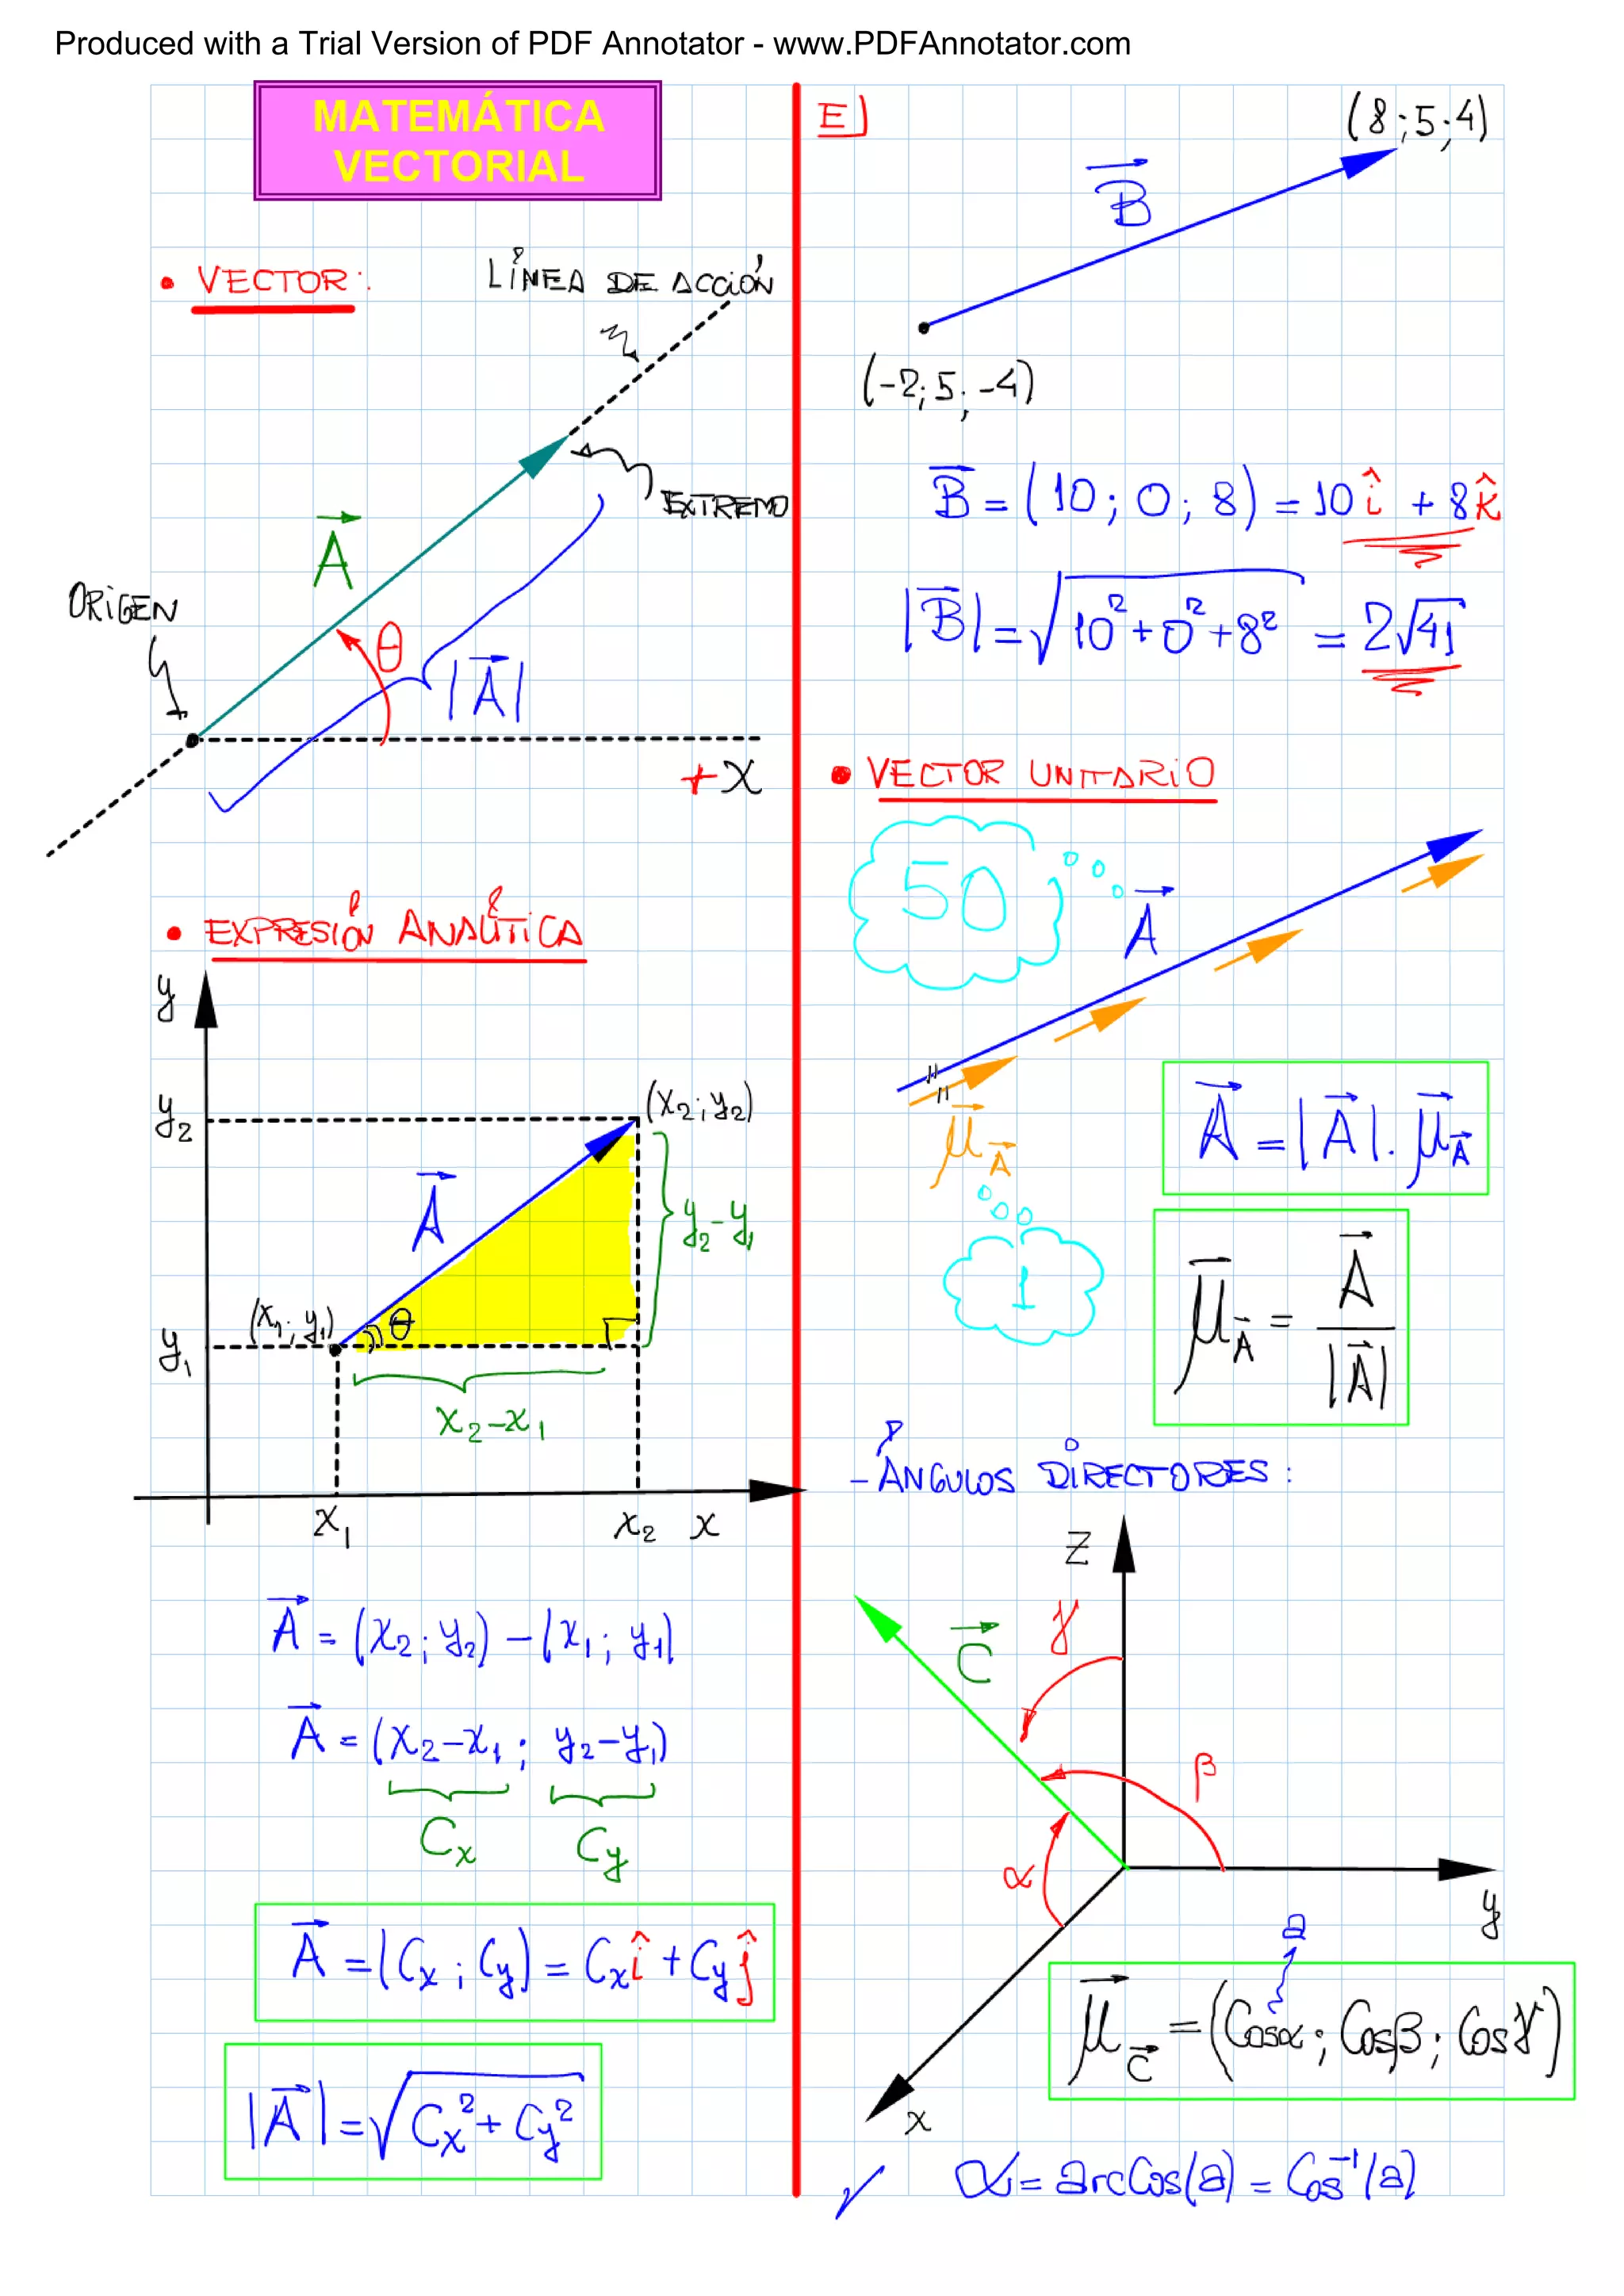 Produced with a Trial Version of PDF Annotator - www.PDFAnnotator.com
MATEMÁTICA
VECTORIAL
• VECTOR:
LÍNEA DE ACCIÓN
EXTREMO
A
ORIGEN
θ
|A|
+X
• EXPRESIÓN ANALÍTICA
y
y₂
(x₂; y₂)
A
y₂-y₁
(x₁; y₁)
θ
y₁
x₂-x₁
x₁
x₂
x
A = (x₂; y₂) - (x₁; y₁)
A = (x₂-x₁; y₂-y₁)
Cx
Cy
A = (Cx; Cy) = Cx î + Cy ĵ
|A| = √(Cx² + Cy²)
E)
(8; 5; 4)
B
(-2; 5; -4)
B = (10; 0; 8) = 10 î + 8 k̂
|B| = √(10² + 0² + 8²) = 2√41
• VECTOR UNITARIO
50
A
μ_A
1
A = |A|. μ_A
μ_A = A / |A|
- ÁNGULOS DIRECTORES:
z
γ
C
β
α
y
a
μ_C = (Cosα; Cosβ; Cosγ)
x
α = arcCos(a) = Cos⁻¹(a)